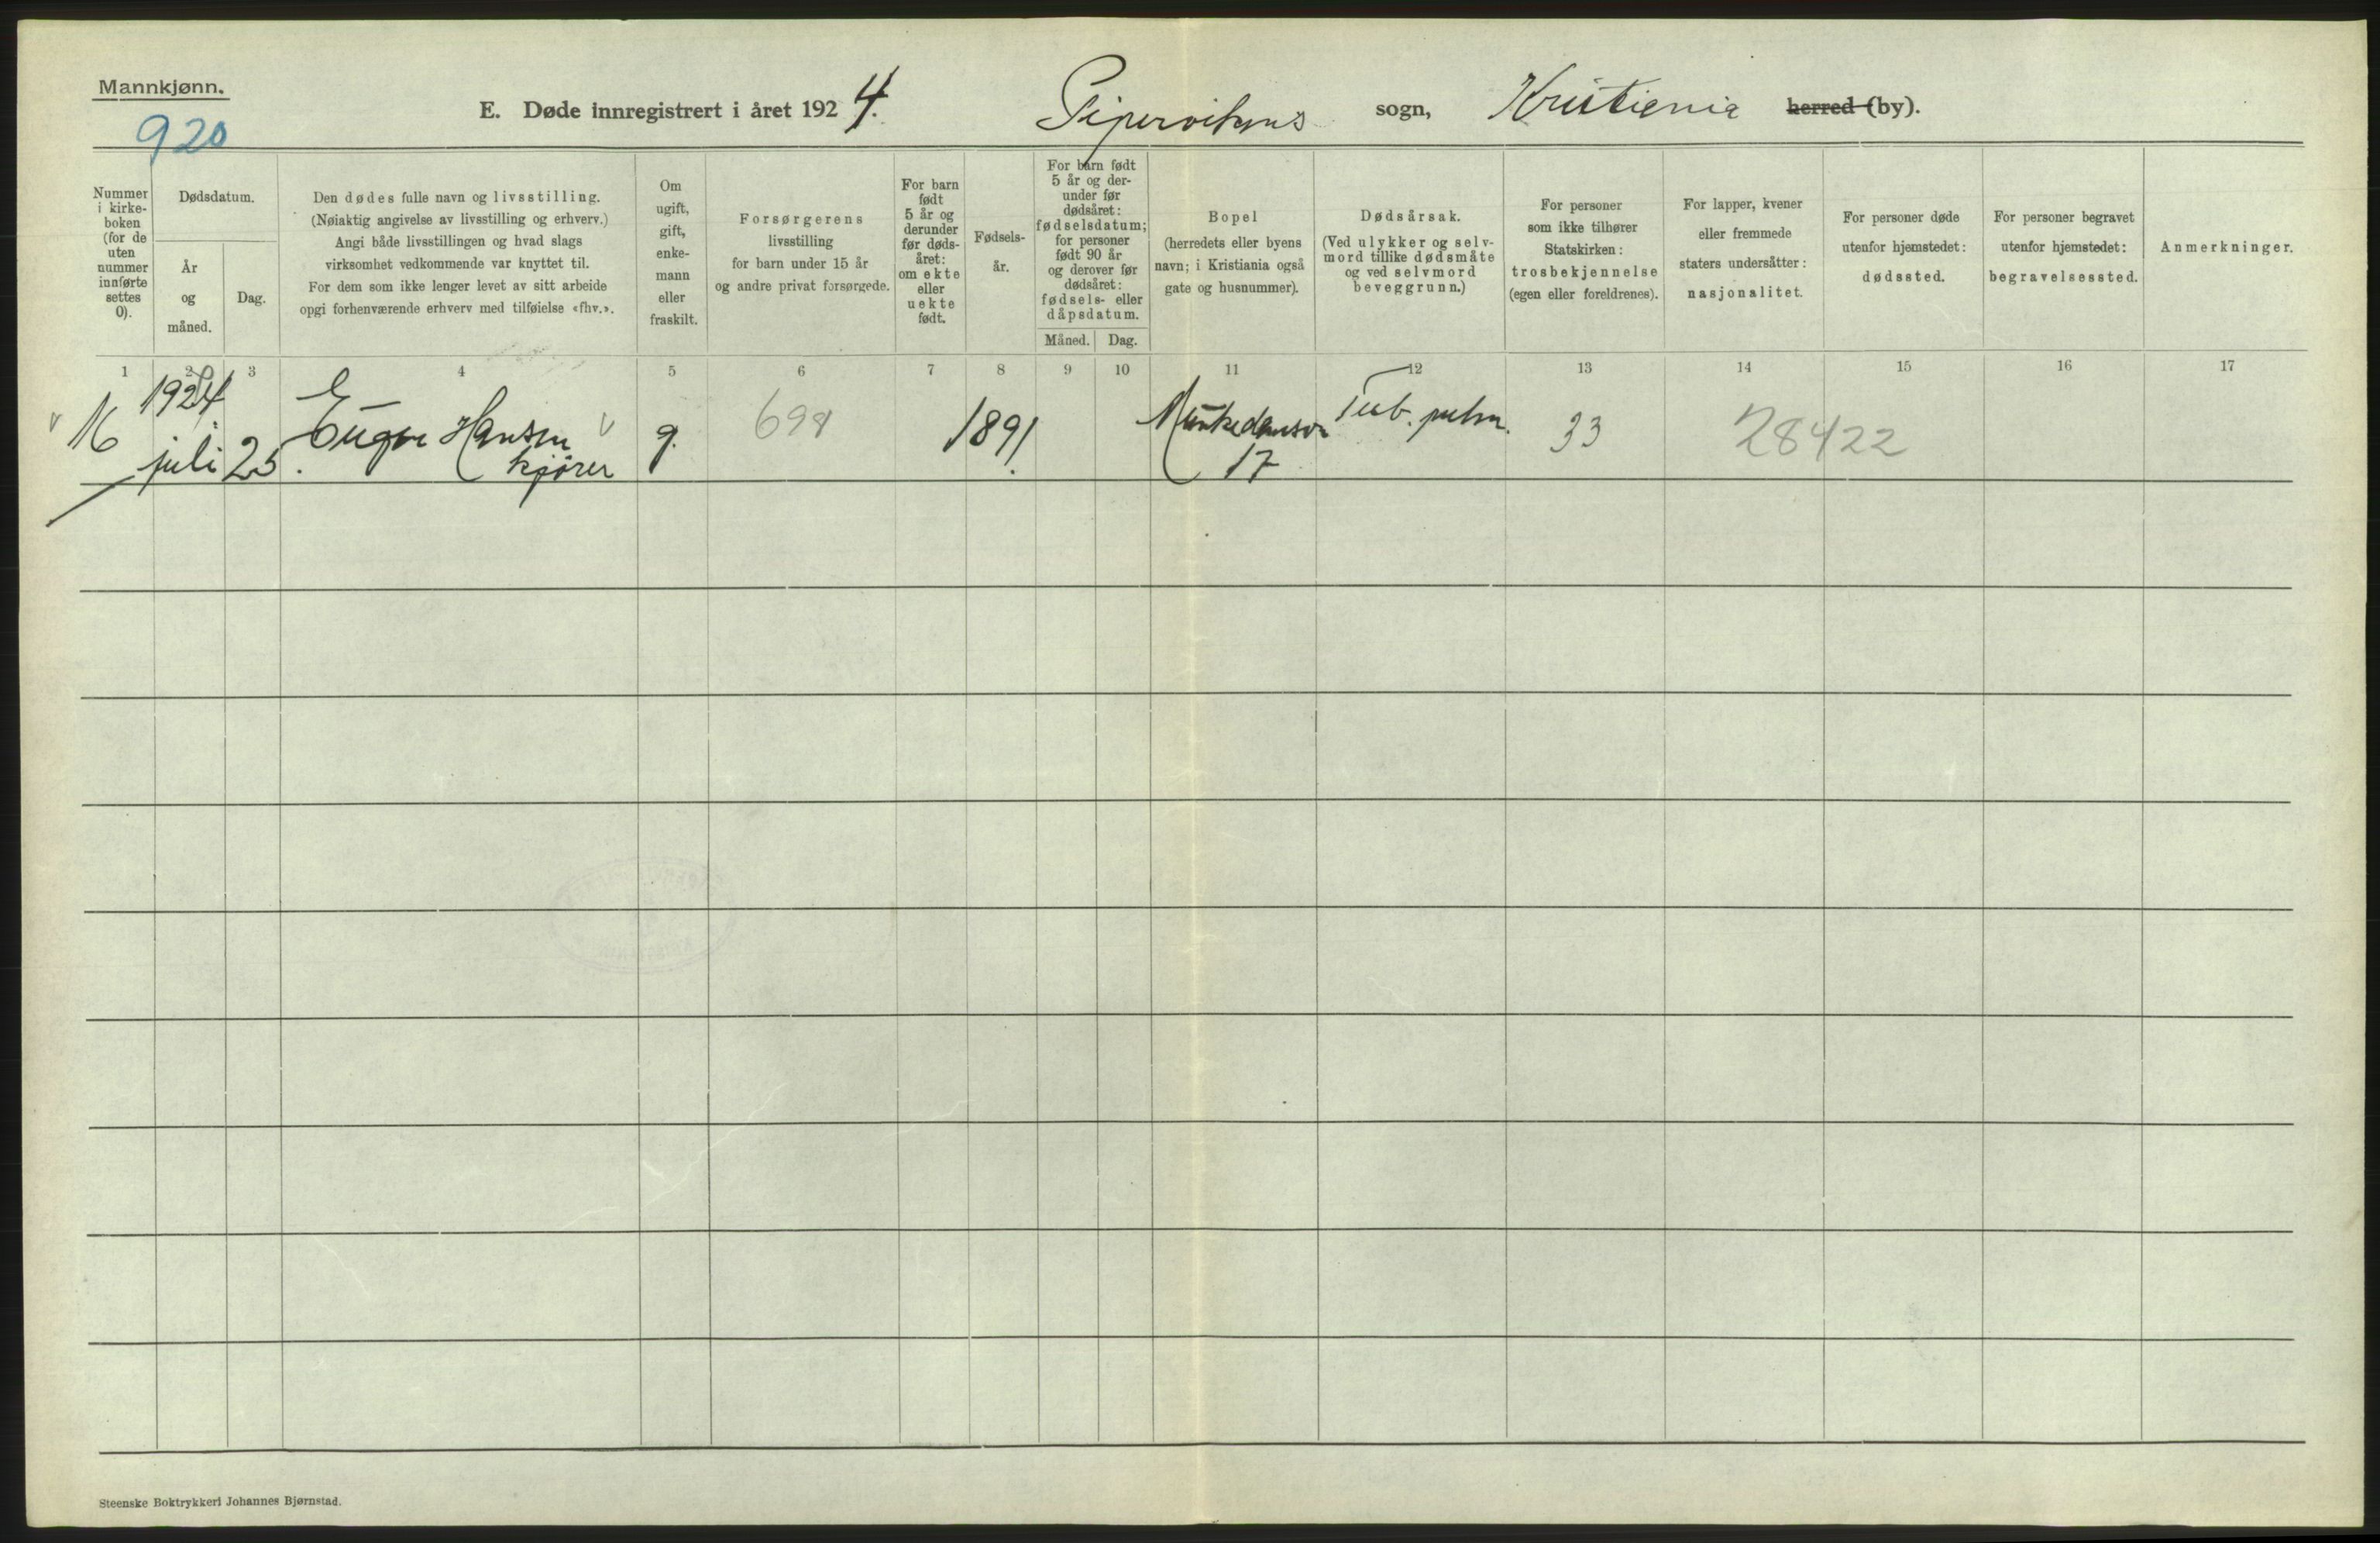 Mannkjønn.
920
E. Døde innregistrert i året 1924. Pipervikens sogn, Kristiania herred (by).
Nummer i kirke-boken (for de uten nummer innførte settes 0).
Dødsdatum.
År og måned.
Dag.
Den dødes fulle navn og livsstilling.
(Nøiaktig angivelse av livsstilling og erhverv.)
Angi både livsstillingen og hvad slags
virksomhet vedkommende var knyttet til.
For dem som ikke lenger levet av sitt arbeide
opgi forhenværende erhverv med tilføielse «fhv.».
Om ugift, gift, enke-mann eller fraskilt.
Forsørgerens
livsstilling
for barn under 15 år
og andre privat forsørgede.
For barn født 5 år og derunder før døds-året: om ekte eller uekte født.
Fødsels-år.
For barn født 5 år og der-under før dødsåret: fødselsdatum; for personer født 90 år og derover før dødsåret: fødsels- eller dåpsdatum.
Måned. Dag.
Bopel
(herredets eller byens
navn; i Kristiania også
gate og husnummer).
Dødsårsak.
(Ved ulykker og selv-
mord tillike dødsmåte
og ved selvmord
beveggrunn.)
For personer
som ikke tilhører
Statskirken:
trosbekjennelse
(egen eller foreldrenes).
For lapper, kvener
eller fremmede
staters undersåtter:
nasjonalitet.
For personer døde
utenfor hjemstedet:
dødssted.
For personer begravet
utenfor hjemstedet:
begravelsessted.
Anmerkninger.
1 2 3 4 5 6 7 8 9 10 11 12 13 14 15 16 17
16 1924 juli 25. Eugen Hansen kjører g. 698 1891. 17 Tub. pulm. 33 28422
Steenske Boktrykkeri Johannes Bjørnstad.